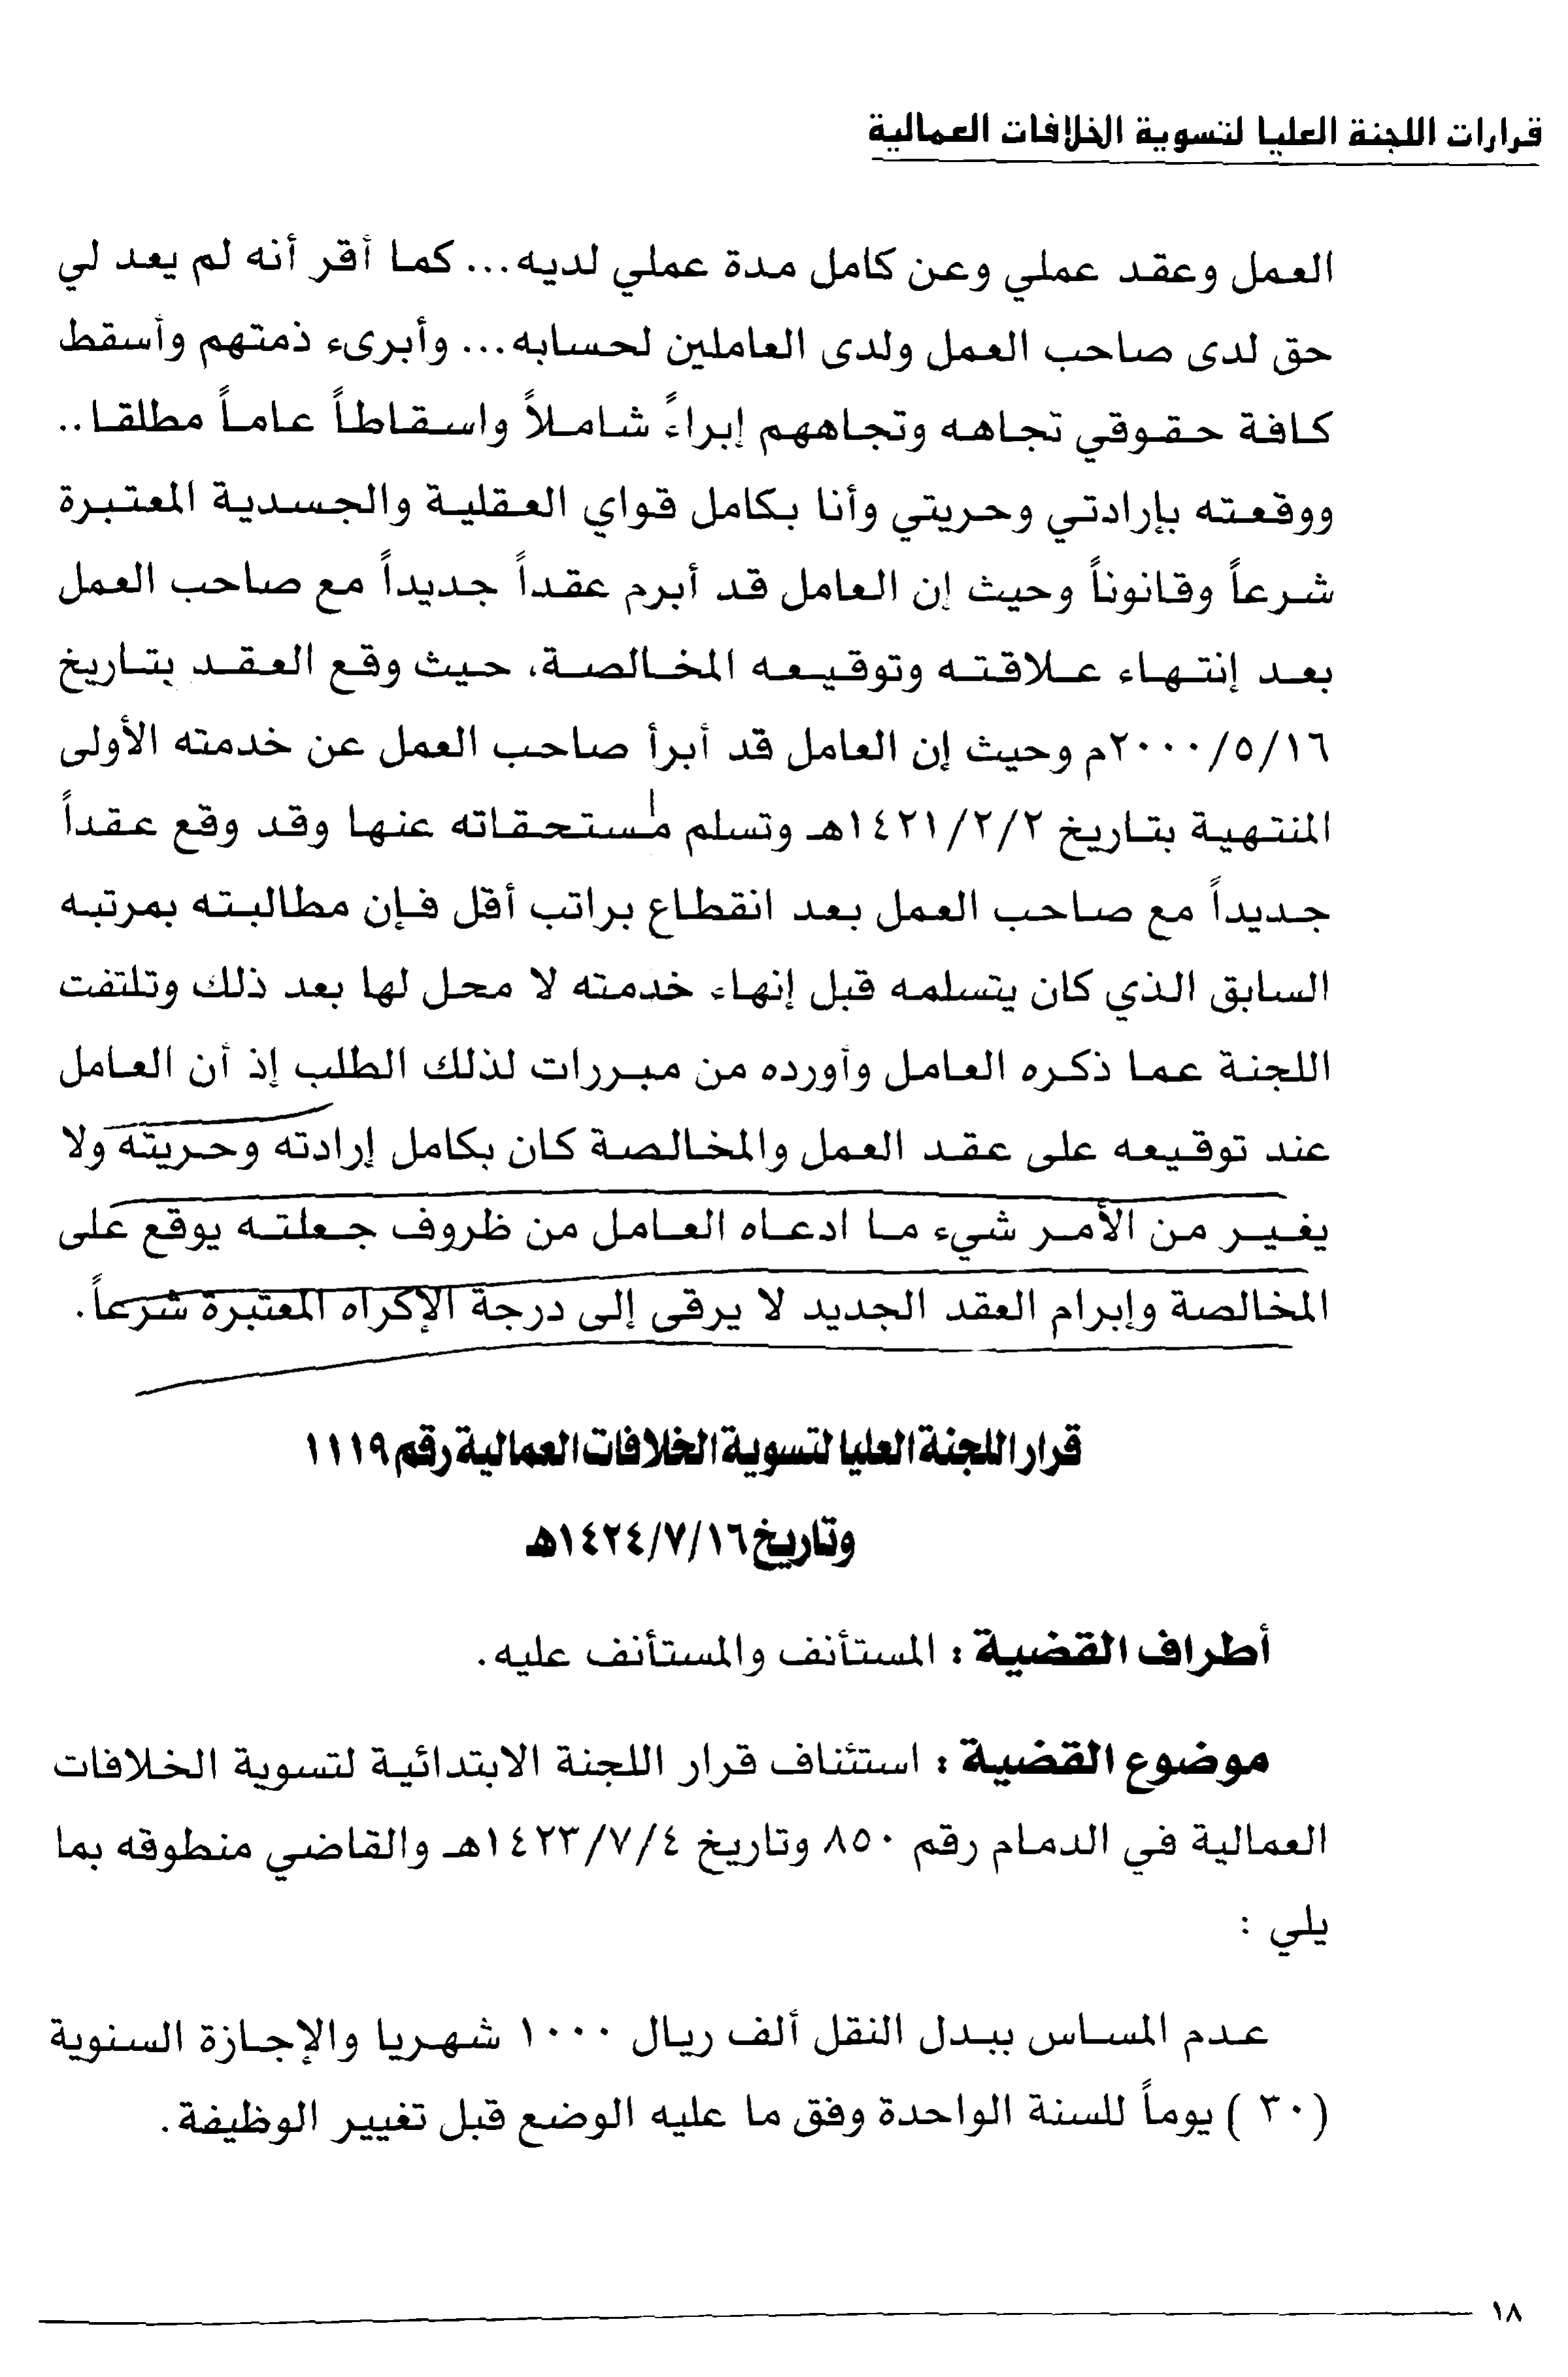 قرارات اللجنة العليا لتسوية الخلافات العمالية
العمل وعقد عملي وعن كامل مدة عملي لديه... كما أقر أنه لم يعد لي
حق لدى صاحب العمل ولدى العاملين لحسابه... وأبرىء ذمتهم وأسقط
كافة حقوقي تجاهه وتجاههم إبراءً شاملاً واسقاطاً عاماً مطلقا..
ووقعته بإرادتي وحريتي وأنا بكامل قواي العقلية والجسدية المعتبرة
شرعاً وقانوناً وحيث إن العامل قد أبرم عقداً جديداً مع صاحب العمل
بعد إنتهاء علاقته وتوقيعه المخالصة، حيث وقع العقد بتاريخ
٢٠٠٠/٥/١٦م وحيث إن العامل قد أبرأ صاحب العمل عن خدمته الأولى
المنتهية بتاريخ ١٤٢١/٢/٢هـ وتسلم مستحقاته عنها وقد وقع عقداً
جديداً مع صاحب العمل بعد انقطاع براتب أقل فإن مطالبته بمرتبه
السابق الذي كان يتسلمه قبل إنهاء خدمته لا محل لها بعد ذلك وتلتفت
اللجنة عما ذكره العامل وأورده من مبررات لذلك الطلب إذ أن العامل
عند توقيعه على عقد العمل والمخالصة كان بكامل إرادته وحريته ولا
يغير من الأمر شيء ما ادعاه العامل من ظروف جعلته يوقع على
المخالصة وإبرام العقد الجديد لا يرقى إلى درجة الإكراه المعتبرة شرعاً.
قرار اللجنة العليا لتسوية الخلافات العمالية رقم ١١١٩
وتاريخ ١٤٢٤/٧/١٦هـ
أطراف القضية : المستأنف والمستأنف عليه.
موضوع القضية : استئناف قرار اللجنة الابتدائية لتسوية الخلافات
العمالية في الدمام رقم ٨٥٠ وتاريخ ١٤٢٣/٧/٤هـ والقاضي منطوقه بما
يلي :
عدم المساس ببدل النقل ألف ريال ١٠٠٠ شهريا والإجازة السنوية
(٣٠ ) يوماً للسنة الواحدة وفق ما عليه الوضع قبل تغيير الوظيفة.
١٨